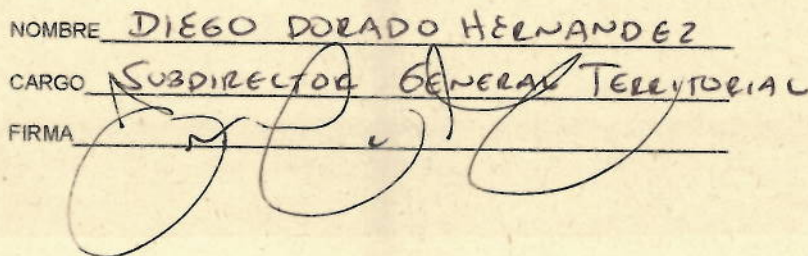 NOMBRE DIEGO DORADO HERNANDEZ
CARGO SUBDIRECTOR GENERAL TERRITORIAL
FIRMA